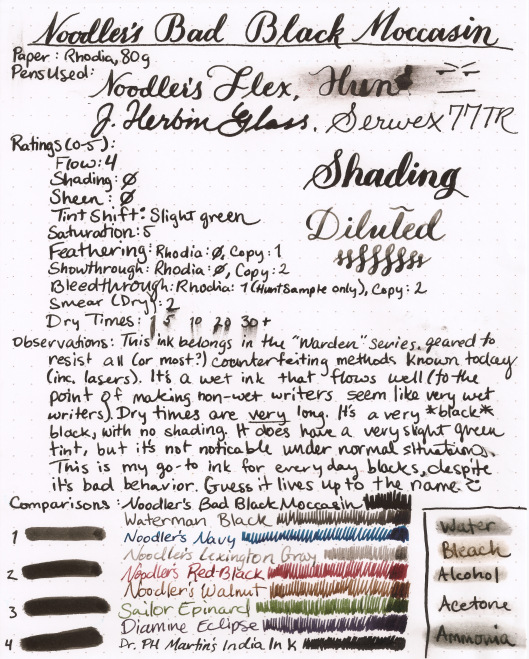 Noodler's Bad Black Moccasin
Paper: Rhodia, 80g
Pens Used:
Noodler's Flex, Hunt
J. Herbin Glass, Serwex 77TR
Ratings (0-5):
Flow: 4
Shading: Ø
Sheen: Ø
Tint Shift: Slight green
Saturation: 5
Feathering: Rhodia: Ø, Copy: 1
Showthrough: Rhodia: Ø, Copy: 2
Bleedthrough: Rhodia: 1 (Hunt Sample only), Copy: 2
Smear (Dry): 2
Dry Times: 1 5 10 20 30+
Shading
Diluted
Observations: This ink belongs in the "Warden" series, geared to
resist all (or most?) counterfeiting methods known today
(inc. lasers). It's a wet ink that flows well (to the
point of making non-wet writers seem like very wet
writers). Dry times are very long. It's a very *black*
black, with no shading. It does have a very slight green
tint, but it's not noticable under normal situations.
This is my go-to ink for everyday blacks, despite
it's bad behavior. Guess it lives up to the name.
Comparisons: Noodler's Bad Black Moccasin
Waterman Black
Noodler's Navy
Noodler's Lexington Gray
Noodler's Red-Black
Noodler's Walnut
Sailor Epinard
Diamine Eclipse
Dr. PH Martin's India Ink
1
2
3
4
Water
Bleach
Alcohol
Acetone
Ammonia